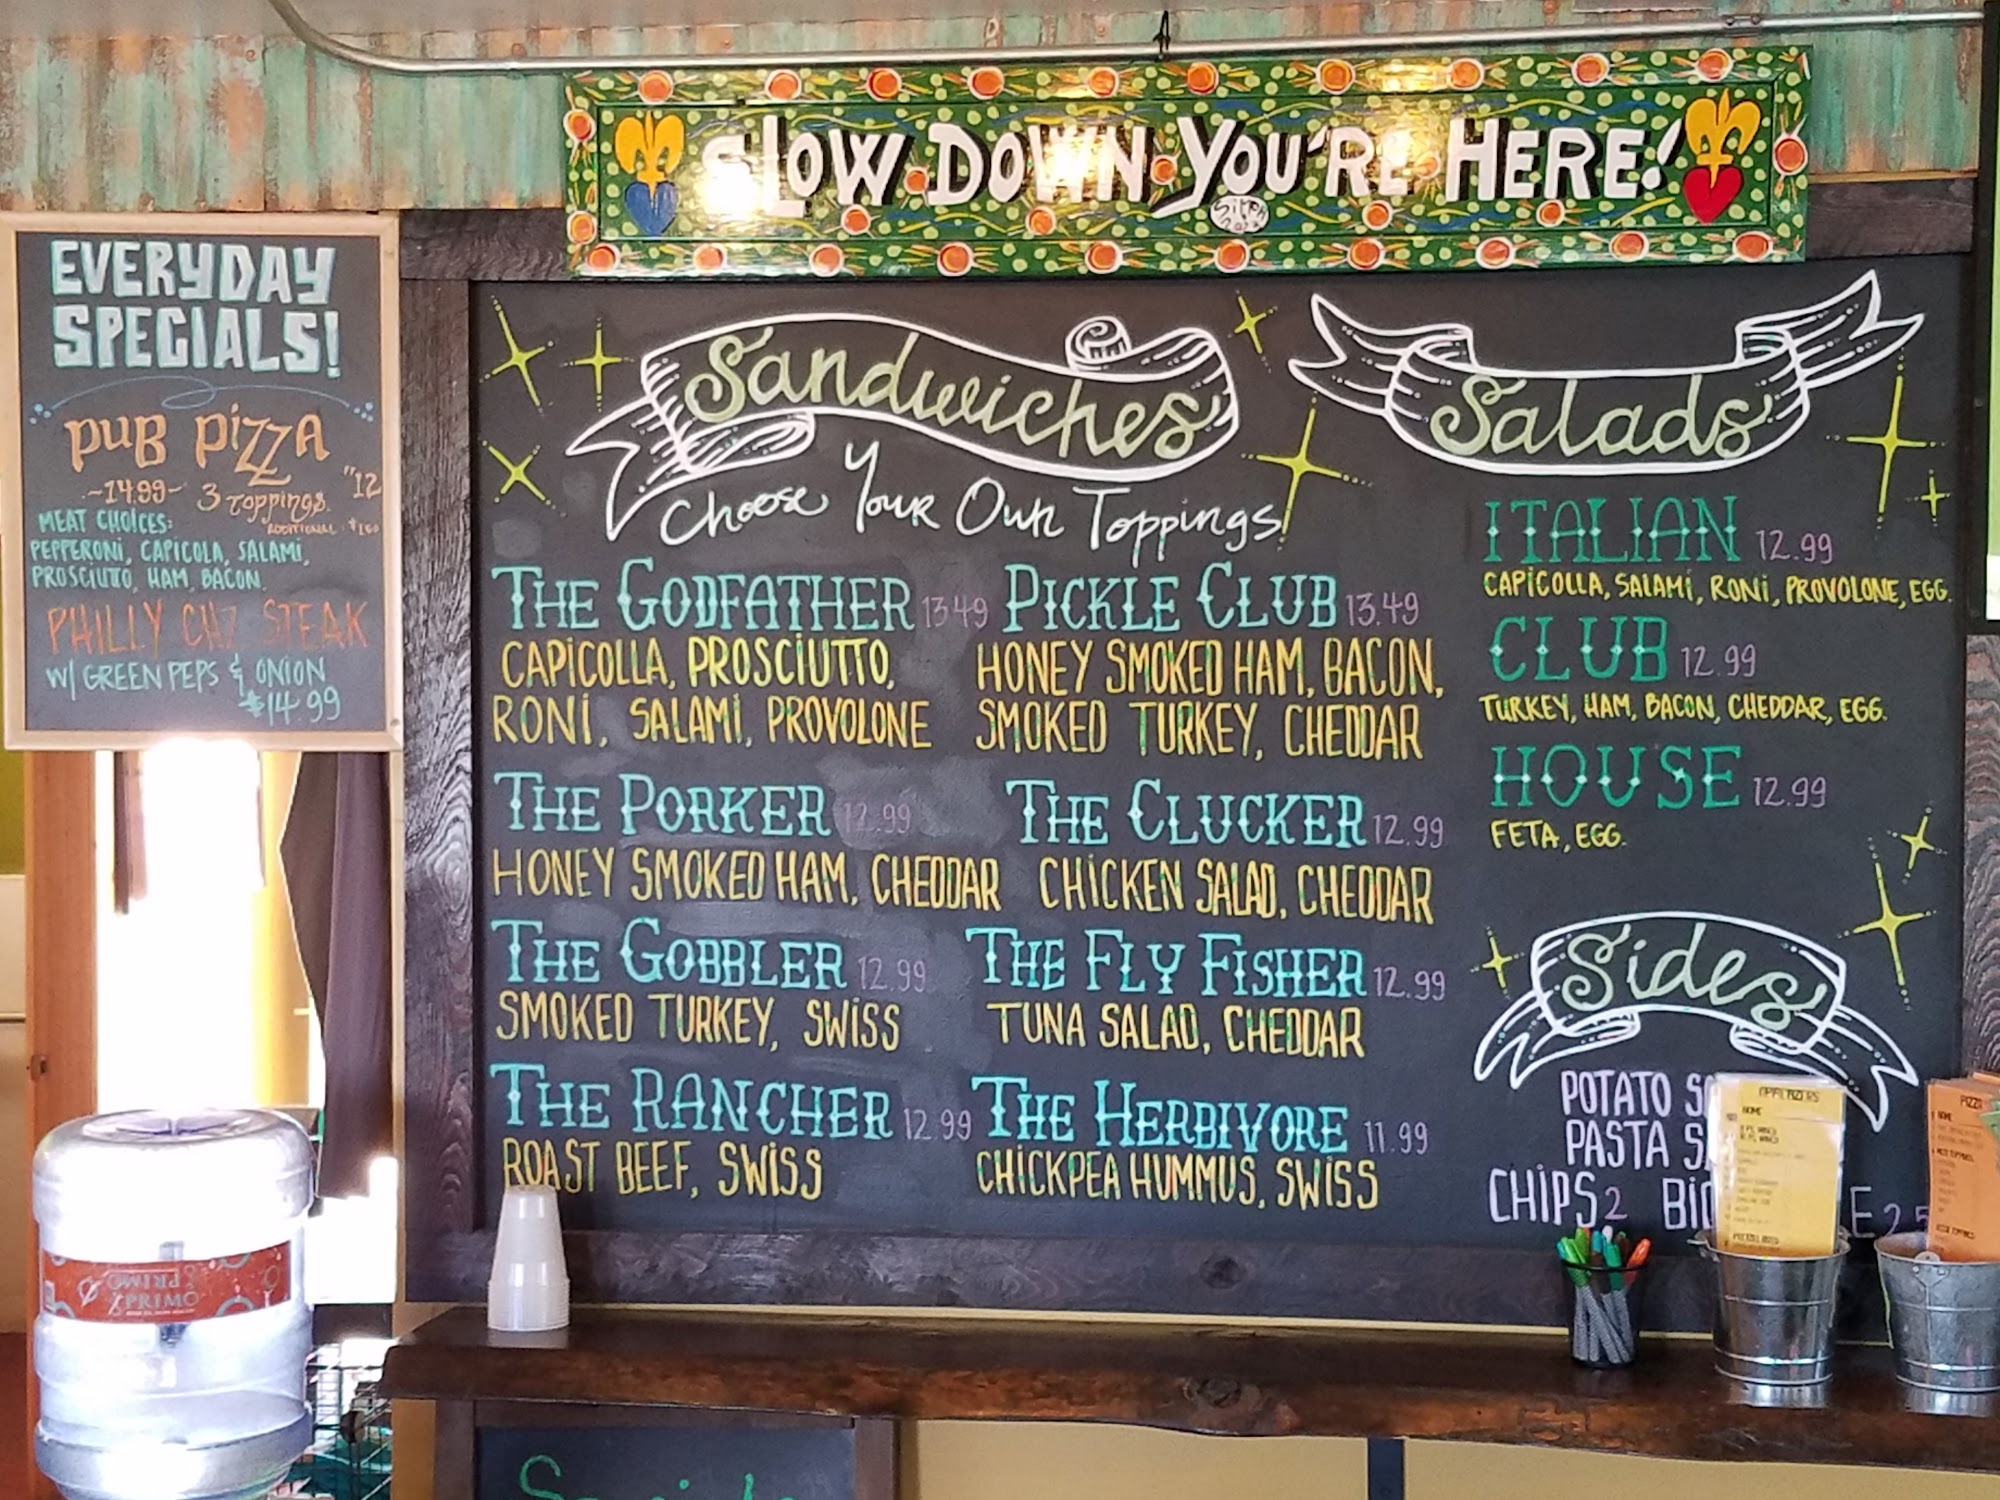 SLOW DOWN YOU'RE HERE!
EVERYDAY
SPECIALS!
PUB PIZZA
~14.99~ 3 TOPPINGS "12
ADDITIONAL
MEAT CHOICES:
PEPPERONI, CAPICOLA, SALAMI,
PROSCIUTTO, HAM, BACON.
PHILLY CHZ STEAK
W/ GREEN PEPS & ONION
$14.99
Sandwiches
Choose Your Own Toppings!
THE GODFATHER 13.49
CAPICOLLA, PROSCIUTTO,
RONI, SALAMI, PROVOLONE
THE PORKER 12.99
HONEY SMOKED HAM, CHEDDAR
THE GOBBLER 12.99
SMOKED TURKEY, SWISS
THE RANCHER 12.99
ROAST BEEF, SWISS
PICKLE CLUB 13.49
HONEY SMOKED HAM, BACON,
SMOKED TURKEY, CHEDDAR
THE CLUCKER 12.99
CHICKEN SALAD, CHEDDAR
THE FLY FISHER 12.99
TUNA SALAD, CHEDDAR
THE HERBIVORE 11.99
CHICKPEA HUMMUS, SWISS
Salads
ITALIAN 12.99
CAPICOLLA, SALAMI, RONI, PROVOLONE, EGG.
CLUB 12.99
TURKEY, HAM, BACON, CHEDDAR, EGG.
HOUSE 12.99
FETA, EGG.
Sides
POTATO
PASTA
CHIPS 2
APPETIZERS
NAME
PIZZA
NAME
PRIMO
PRIMO